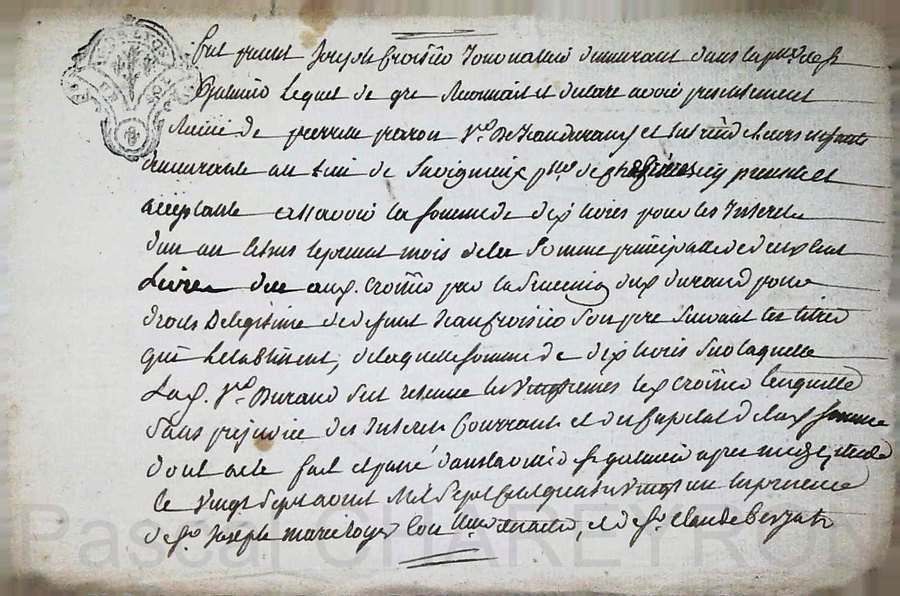 fut present Joseph Croizier Journallier demeurant dans la p.sse de s.t
Galmier Lequel de gré Reconnait et declare avoir presentement
Reçu de pierrette v.e De Jean durand et tutrice de leurs enfants
demeurante au lieu de Savignieux p.sse de presente et
acceptante assavoir la somme de dix livres pour les Interets
d'un an echus le present mois de la Somme principalle de deux Cent
Livres due aud. Croizier par la Succession dud. durand pour
droits De legitime de defunt Jean Croizier Son pere Suivant les titres
qui l'etablissent, de laquelle somme de dix livres Sur laquelle
Lad. v.e Durand s'est retenue les vingtiemes led. Croizier l'en quitte
Sans prejudice des Interets Courrants et du Capital de lad. somme
dont acte fait et passé dans la ville de s.t galmier apres midy
le vingt Sept aout Mil Sept Cent quatre vingt un en presence
de S.r Joseph marie Royer de S.r Claude
Pascal CHAREYRON